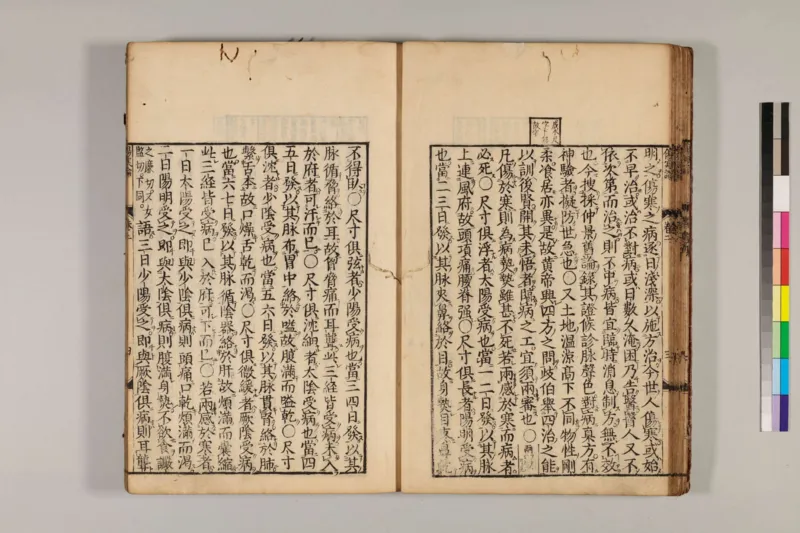 明之傷寒之病逐日淺深以施方治今世人傷寒或始
不早治或治不對病或日數久淹困乃告醫醫人又不
依次第而治之則不中病皆宜臨時消息制方無不效
也今搜採仲景舊論錄其證候診脉聲色對病真方有
神驗者擬防世急也〇又土地溫涼高下不同物性剛
柔飡居亦異是故黃帝興四方之問歧伯舉四治之能
以訓後賢開其未悟者臨病之工宜須兩審也〇
凡傷於寒則為病熱熱雖甚不死若兩感於寒而病者
必死〇尺寸俱浮者太陽受病也當一二日發以其脉
上連風府故頭項痛腰脊强〇尺寸俱長者陽明受病
也當二三日發以其脉夾鼻絡於目故身熱目疼鼻乾
不得臥〇尺寸俱弦者少陽受病也當三四日發以其
脉循脅絡於耳故胷脅痛而耳聾此三經皆受病未入
於府者可汗而已〇尺寸俱沈細者太陰受病也當四
五日發以其脉布胃中絡於嗌故腹滿而嗌乾〇尺寸
俱沈者少陰受病也當五六日發以其脉貫腎絡於肺
繫舌本故口燥舌乾而渴〇尺寸俱微緩者厥陰受病
也當六七日發以其脉循陰器絡於肝故煩滿而囊縮
此三經皆受病已入於府可下而已〇若兩感於寒者
一日太陽受之即與少陰俱病則頭痛口乾煩滿而渴
二日陽明受之即與太陰俱病則腹滿身熱不欲食譫
語三日少陽受之即與厥陰俱病則耳聾